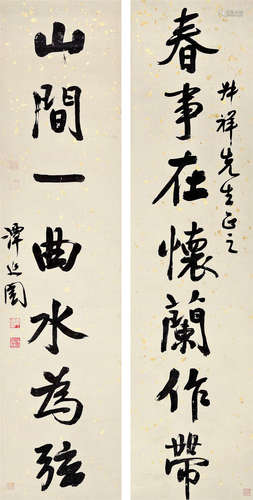 春事在懷蘭作帶
升祥先生正之
山間一曲水為弦
譚延闓